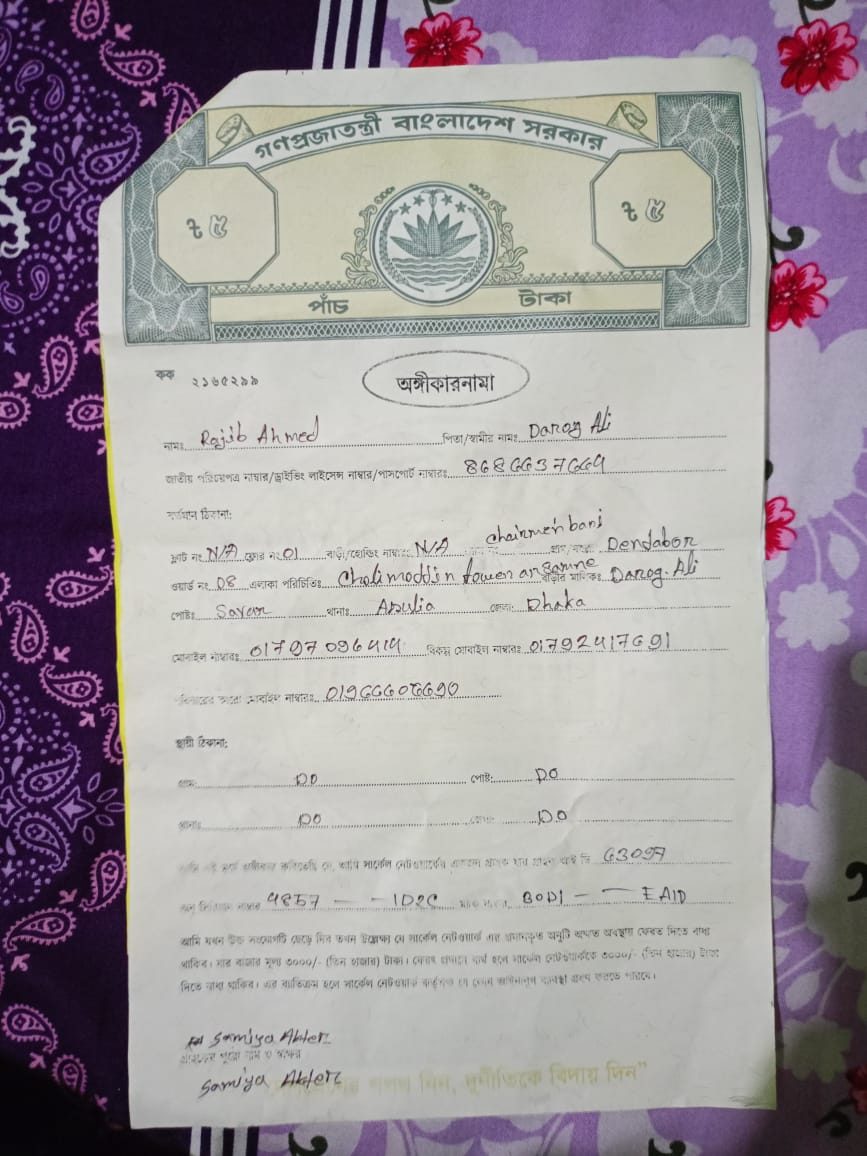 গণপ্রজাতন্ত্রী বাংলাদেশ সরকার
৳ ৫ ৳ ৫
পাঁচ টাকা
কক ২১৬৫২৯৯
অঙ্গীকারনামা
নামঃ Rajib Ahmed পিতা/স্বামীর নামঃ Darog Ali
জাতীয় পরিচয়পত্র নাম্বার/ড্রাইভিং লাইসেন্স নাম্বার/পাসপোর্ট নাম্বারঃ 8686637664
বর্তমান ঠিকানা:
ফ্লাট নং N/A ফ্লোর নং 01 বাড়ী/হোল্ডিং নাম্বারঃ N/A chairmen bani Dendabor
ওয়ার্ড নং 08 এলাকা পরিচিতিঃ Cholimoddin বাড়ীর মালিকঃ Darog. Ali
পোষ্টঃ Savar থানাঃ Asulia জেলা: Dhaka
মোবাইল নাম্বারঃ 01797096414 বিকল্প মোবাইল নাম্বারঃ 01792417691
মোবাইল নাম্বারঃ
স্থায়ী ঠিকানা:
গ্রাম: DO পোষ্ট: DO
থানাঃ DO জেলা: DO
63097
9857 - - 1D2C BODI - - EAID
আমি যখন উক্ত সংযোগটি ছেড়ে দিব তখন উল্লেখ্য যে সার্কেল নেটওয়ার্ক এর প্রদানকৃত অনুটি অক্ষত অবস্থায় ফেরত দিতে বাধ্য
থাকিব। যার বাজার মূল্য ৩০০০/- (তিন হাজার) টাকা। ফেরত প্রদানে ব্যর্থ হলে সার্কেল নেটওয়ার্ককে ৩০০০/- (তিন হাজার) টাকা
দিতে বাধ্য থাকিব। এর ব্যতিক্রম হলে সার্কেল নেটওয়ার্ক কর্তৃপক্ষ যে কোন আইনানুগ ব্যবস্থা গ্রহণ করতে পারবে।
Samiya Akter
গ্রাহকের পুরো নাম ও স্বাক্ষর
Samiya Akter
দুর্নীতিকে বিদায় দিন"